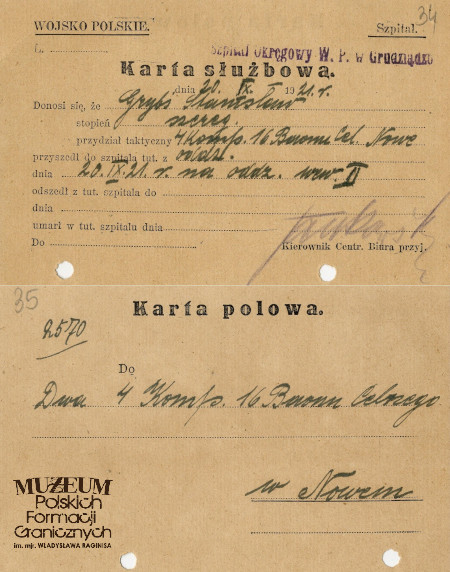 34
WOJSKO POLSKIE. Szpital.
L.
Szpital Okręgowy W. P. w Grudziądzu
Karta służbowa.
dnia 20. IX. 1921. r.
Donosi się, że Grybś Stanisław
stopień szereg.
przydział taktyczny 4 Komp. 16 Baonu Cel. Nowe
przyszedł do szpitala tut. z oddz.
dnia 20. IX. 21. r. na oddz. wew II
odszedł z tut. szpitala do
dnia
umarł w tut. szpitalu dnia
Do Kierownik Centr. Biura przyj.
35
Karta polowa.
2570
Do
Dwa 4 Komp. 16 Baonu Celnego
w Nowem
MUZEUM
Polskich
Formacji
Granicznych
im. mjr. WŁADYSŁAWA RAGINISA